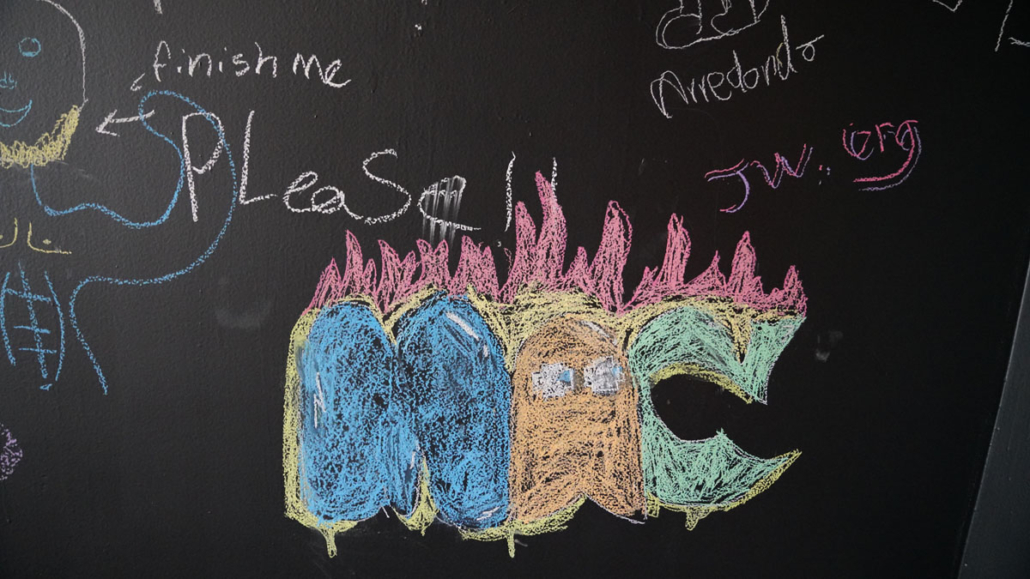 finish me
PLeaSe!!
Arredondo
JW.org
MAC